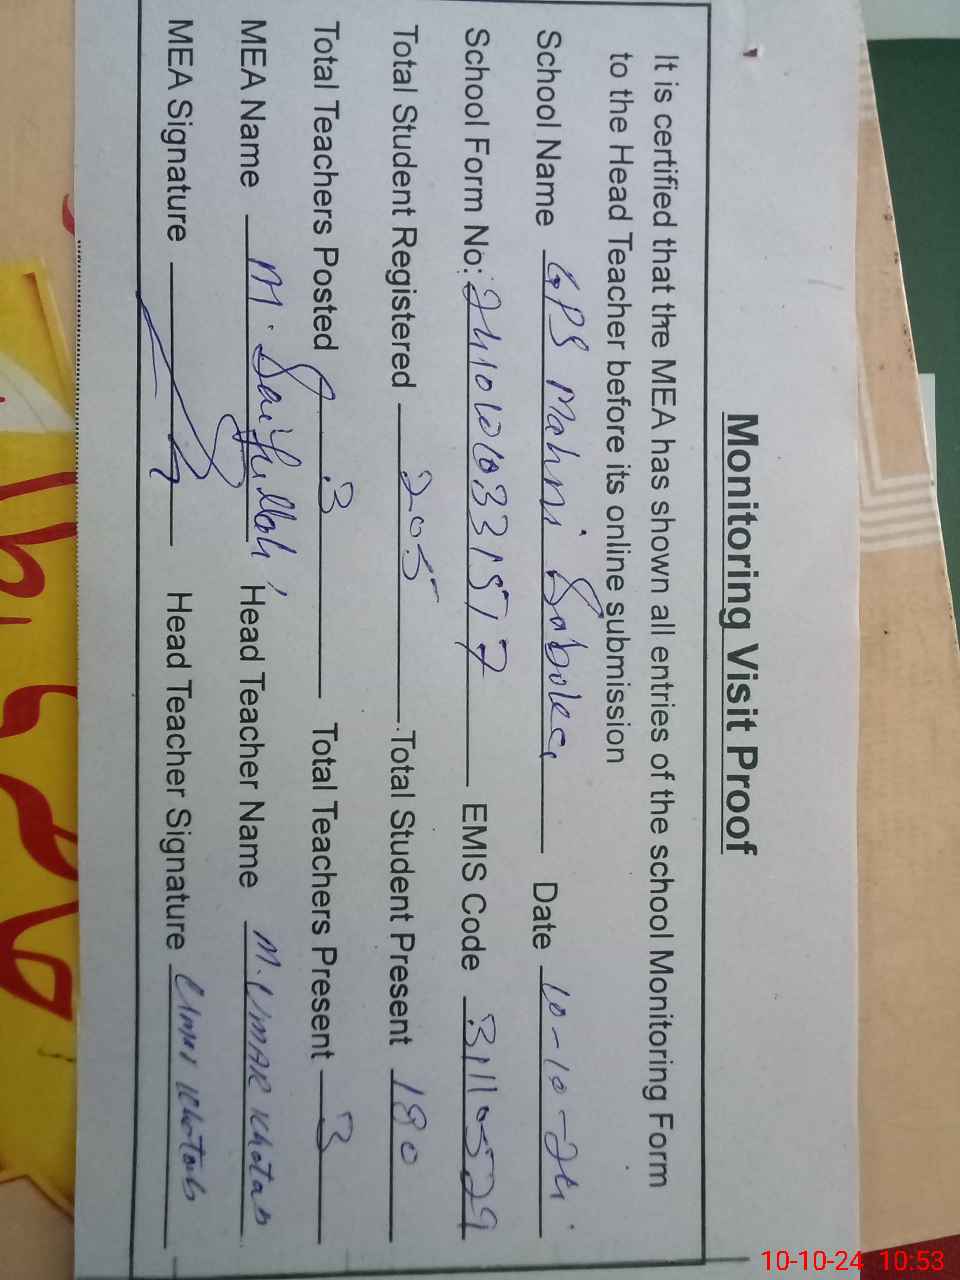 Monitoring Visit Proof
It is certified that the MEA has shown all entries of the school Monitoring Form
to the Head Teacher before its online submission
School Name GPS Mahni Date 10-10-24
School Form No: EMIS Code 31110529
Total Student Registered 205 Total Student Present 180
Total Teachers Posted 3 Total Teachers Present 3
MEA Name M. Saifullah Head Teacher Name M. UMAR Khatab
MEA Signature Head Teacher Signature Umar Khatab
10-10-24 10:53